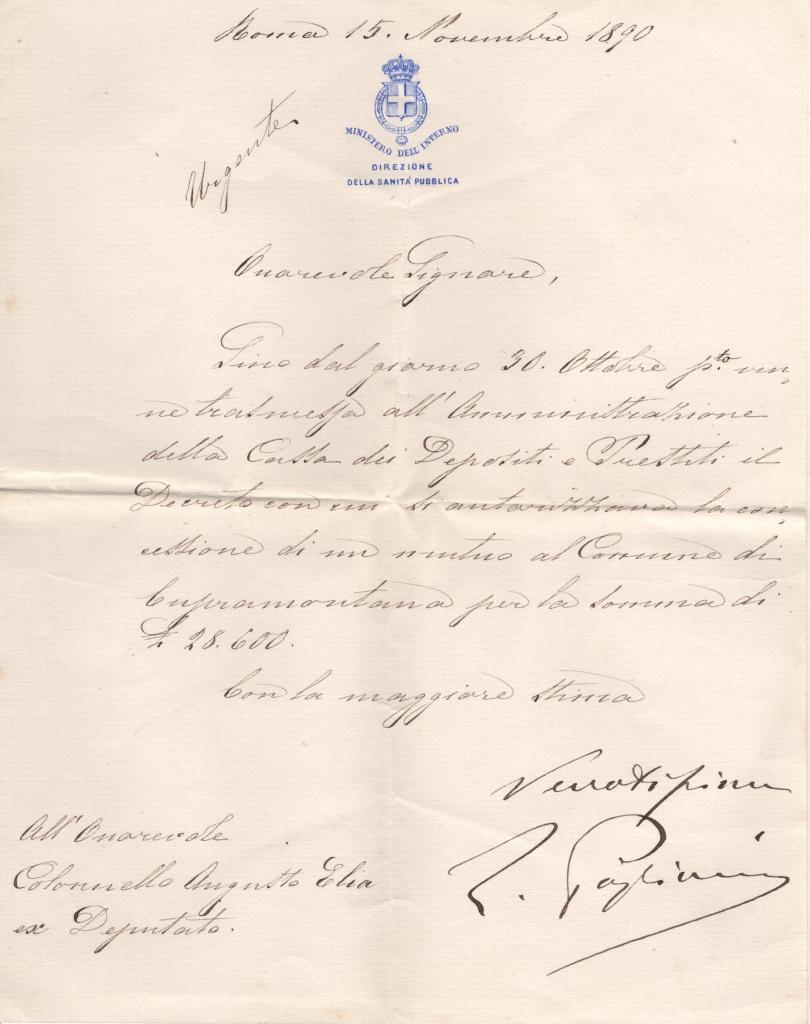 Roma 15. Novembre 1890
MINISTERO DELL'INTERNO
DIREZIONE
DELLA SANITÀ PUBBLICA
Urgente
Onorevole Signore,
Fino dal giorno 30. Ottobre p.to ven=
ne trasmesso all'Amministrazione
della Cassa dei Depositi e Prestiti il
Decreto con cui si autorizzava la con=
cessione di un mutuo al Comune di
Cupramontana per la somma di
£ 28.600.
Con la maggiore stima
L. Pagliani
All'Onorevole
Colonnello Augusto Elia
ex Deputato.